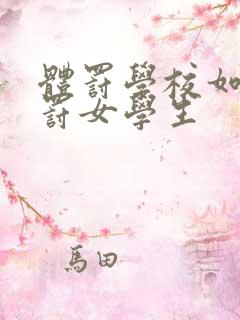 體罰學校如
罰女學生
馬田